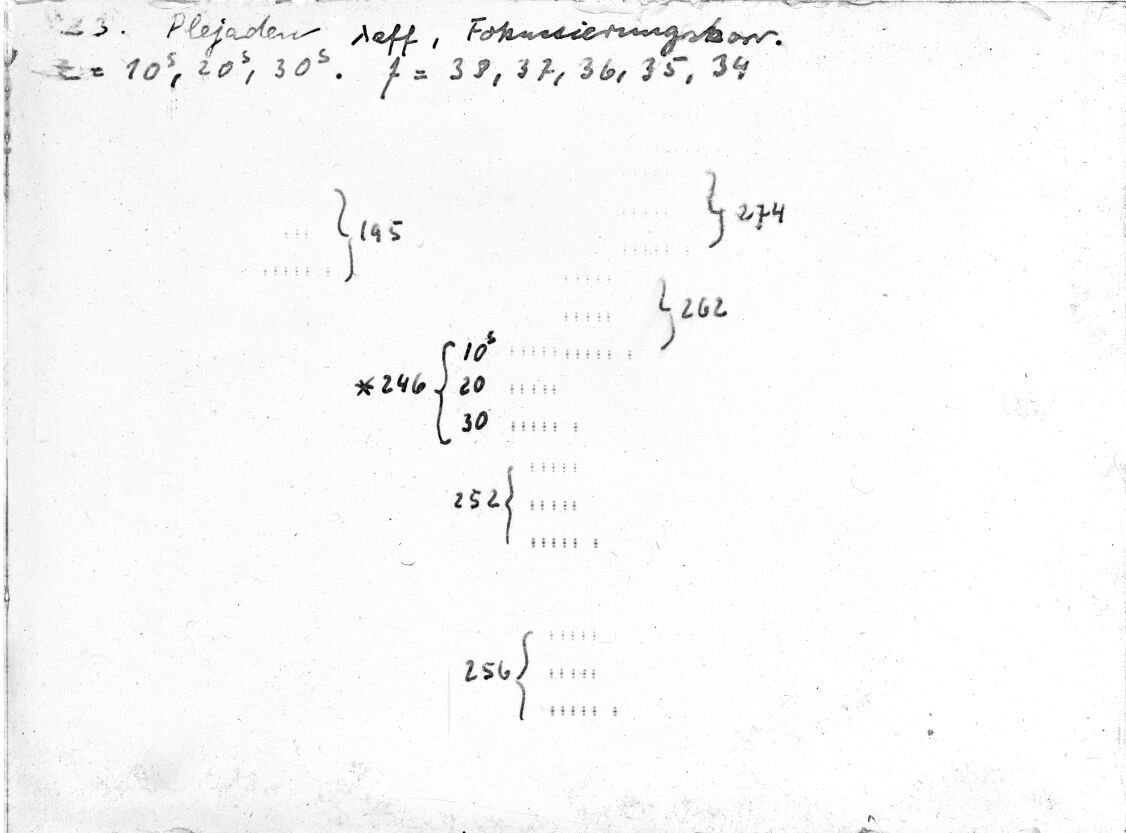 23. Plejaden λeff, Fokussierungskorr.
t = 10ˢ, 20ˢ, 30ˢ. f = 38, 37, 36, 35, 34
274
195
262
*246 { 10ˢ
20
30
252
256